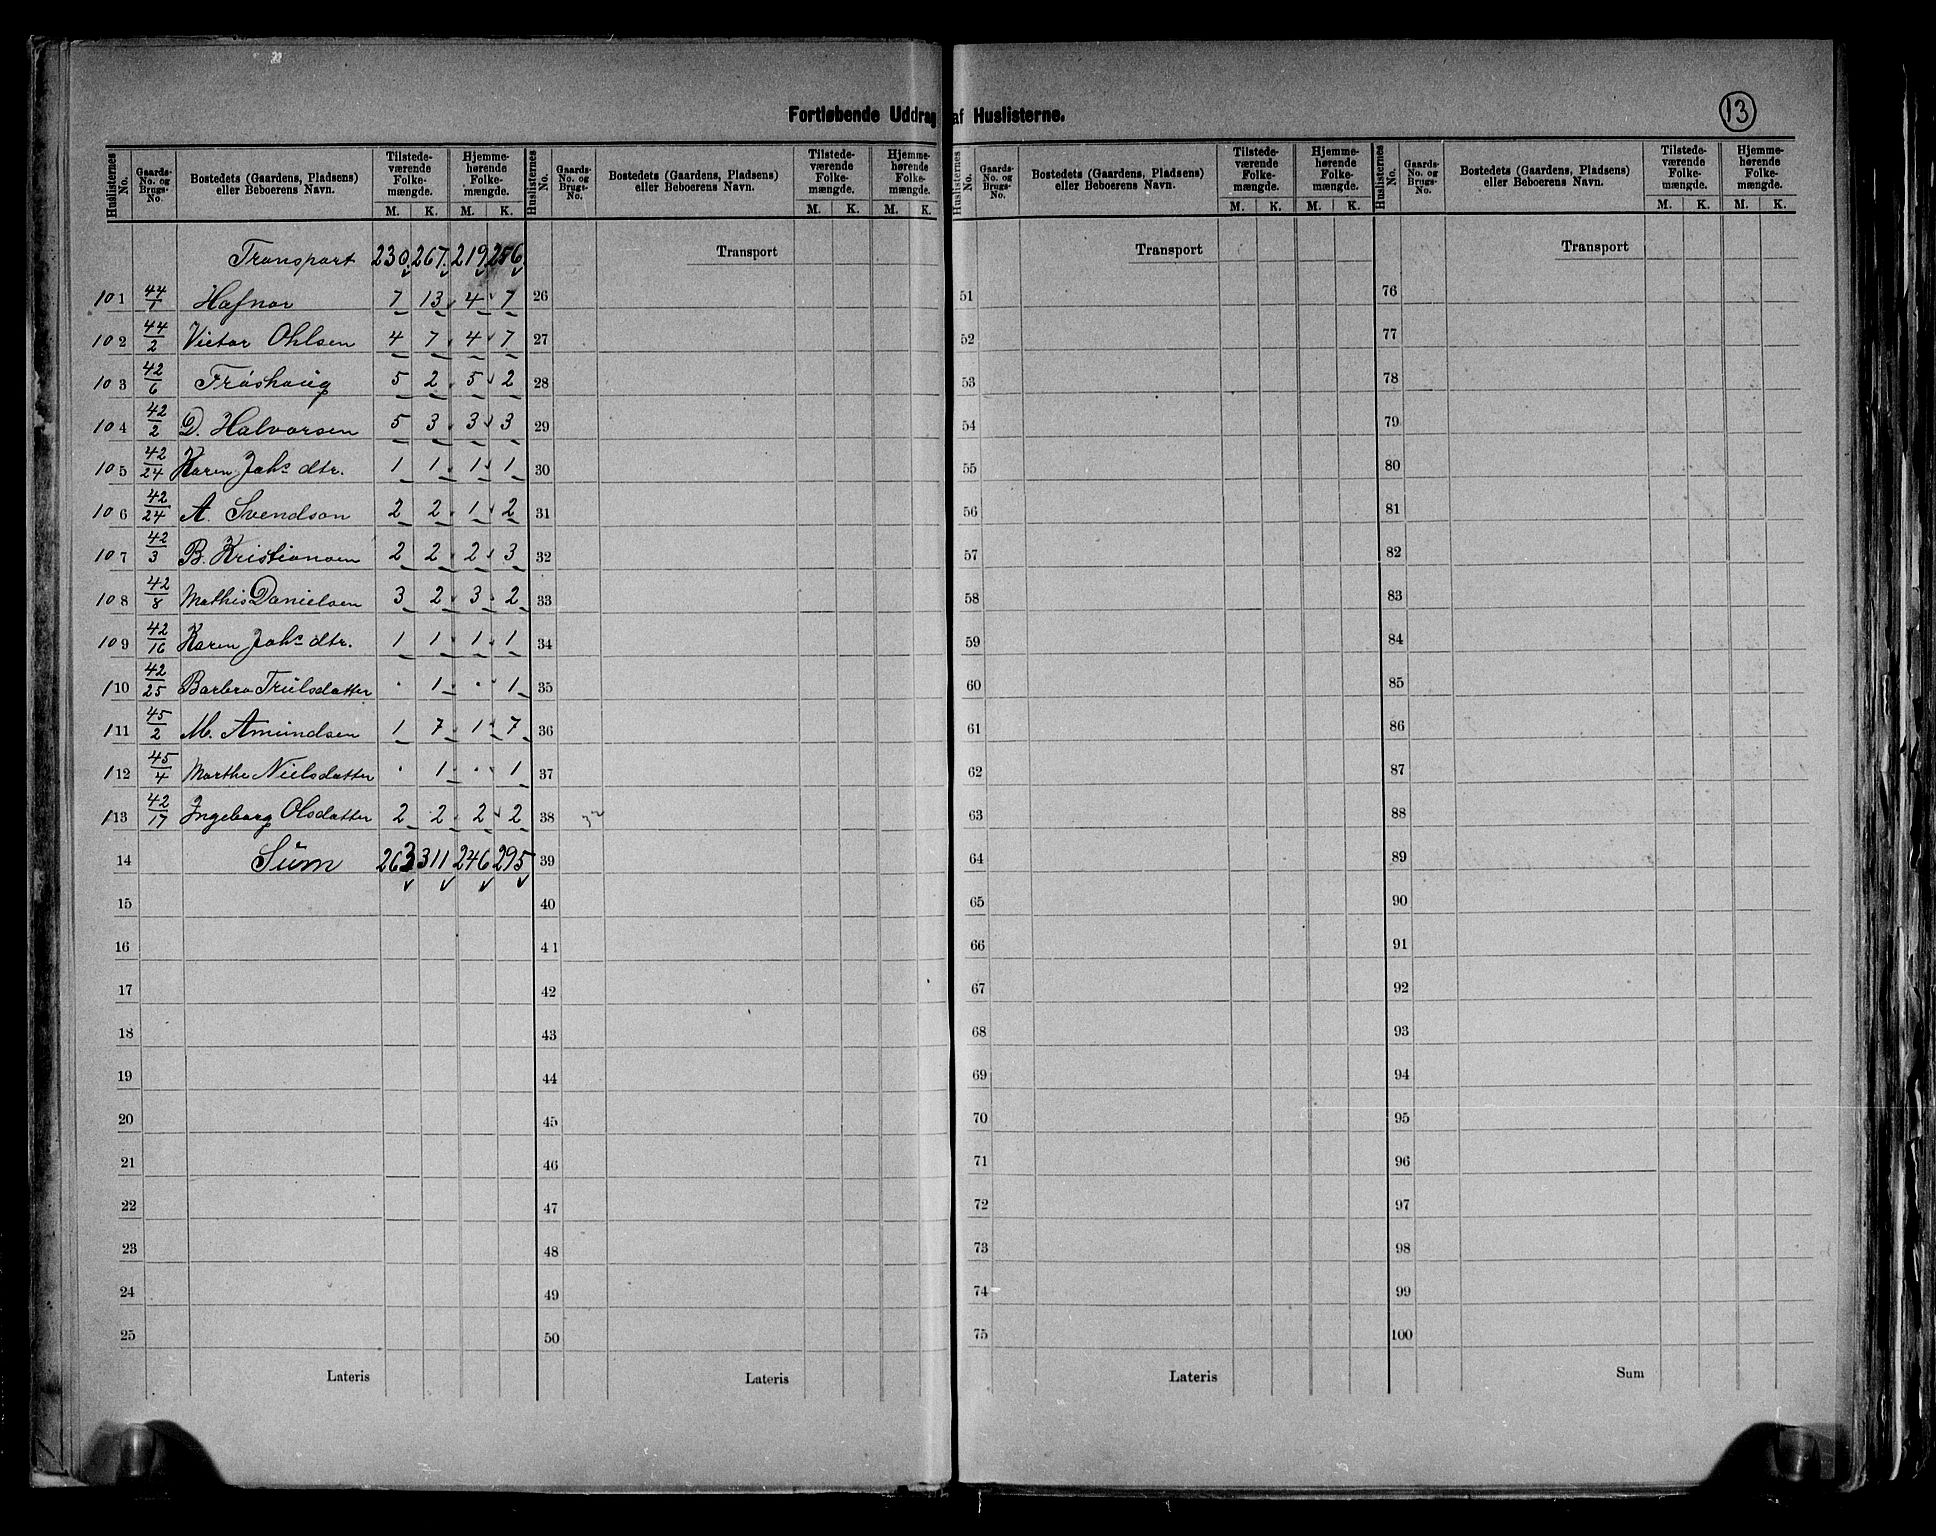 Fortløbende Uddrag af Huslisterne.
13
Huslisternes No. | Gaards-No. og Brugs-No. | Bostedets (Gaardens, Pladsens) eller Beboerens Navn. | Tilstedeværende Folkemængde. M. K. | Hjemmehørende Folkemængde. M. K.
Transport 230 267 219 256
101 44/1 Hafnor 7 13 4 7
102 44/2 Victor Ohlsen 4 7 4 7
103 42/6 Fröshaug 5 2 5 2
104 42/2 D. Halvorsen 5 3 3 3
105 42/24 Karen Johs dtr. 1 1 1 1
106 42/24 A. Svendson 2 2 1 2
107 42/3 B. Kristiansen 2 2 2 3
108 42/8 Mathis Danielsen 3 2 3 2
109 42/16 Karen Johs dtr. 1 1 1 1
110 42/25 Barbro Trulsdatter . 1 . 1
111 45/2 M. Amundsen 1 7 1 7
112 45/4 Marthe Nielsdatter . 1 . 1
113 42/17 Ingeborg Olsdatter 2 2 2 2
14 Sum 263 311 246 295
15
16
17
18
19
20
21
22
23
24
25
Lateris
Huslisternes No. | Gaards-No. og Brugs-No. | Bostedets (Gaardens, Pladsens) eller Beboerens Navn. | Tilstedeværende Folkemængde. M. K. | Hjemmehørende Folkemængde. M. K.
Transport
26
27
28
29
30
31
32
33
34
35
36
37
38
39
40
41
42
43
44
45
46
47
48
49
50
Lateris
Huslisternes No. | Gaards-No. og Brugs-No. | Bostedets (Gaardens, Pladsens) eller Beboerens Navn. | Tilstedeværende Folkemængde. M. K. | Hjemmehørende Folkemængde. M. K.
Transport
51
52
53
54
55
56
57
58
59
60
61
62
63
64
65
66
67
68
69
70
71
72
73
74
75
Lateris
Huslisternes No. | Gaards-No. og Brugs-No. | Bostedets (Gaardens, Pladsens) eller Beboerens Navn. | Tilstedeværende Folkemængde. M. K. | Hjemmehørende Folkemængde. M. K.
Transport
76
77
78
79
80
81
82
83
84
85
86
87
88
89
90
91
92
93
94
95
96
97
98
99
100
Sum